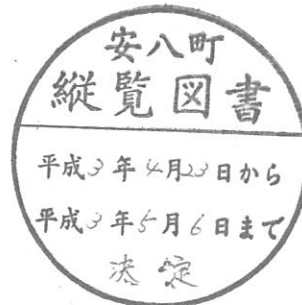 安八町
縦覧図書
平成3年4月23日から
平成3年5月6日まで
決定